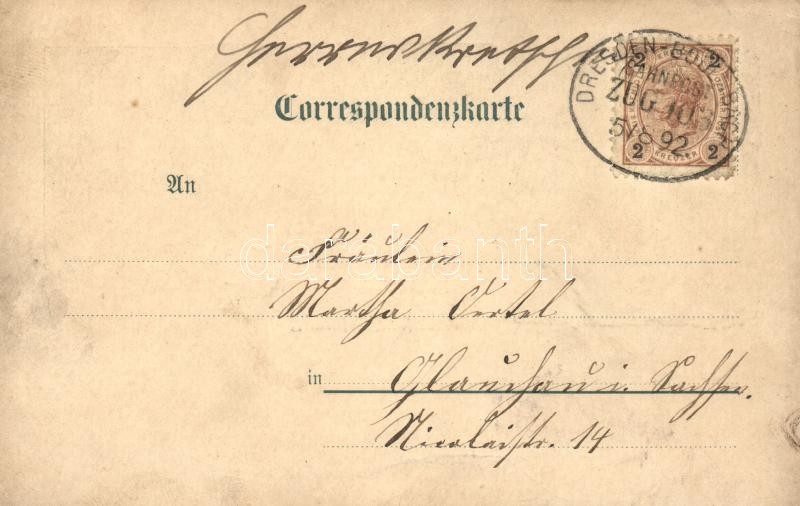 Herrnskretsch
DRESDEN-BO
BAHNPOST
ZUG 10
5/8 92
2 2
2 2
KREUZER
Correspondenzkarte
An
Fräulein
Martha Oertel
in Glauchau i. Sachsen.
Nicolaistr. 14
darabanth